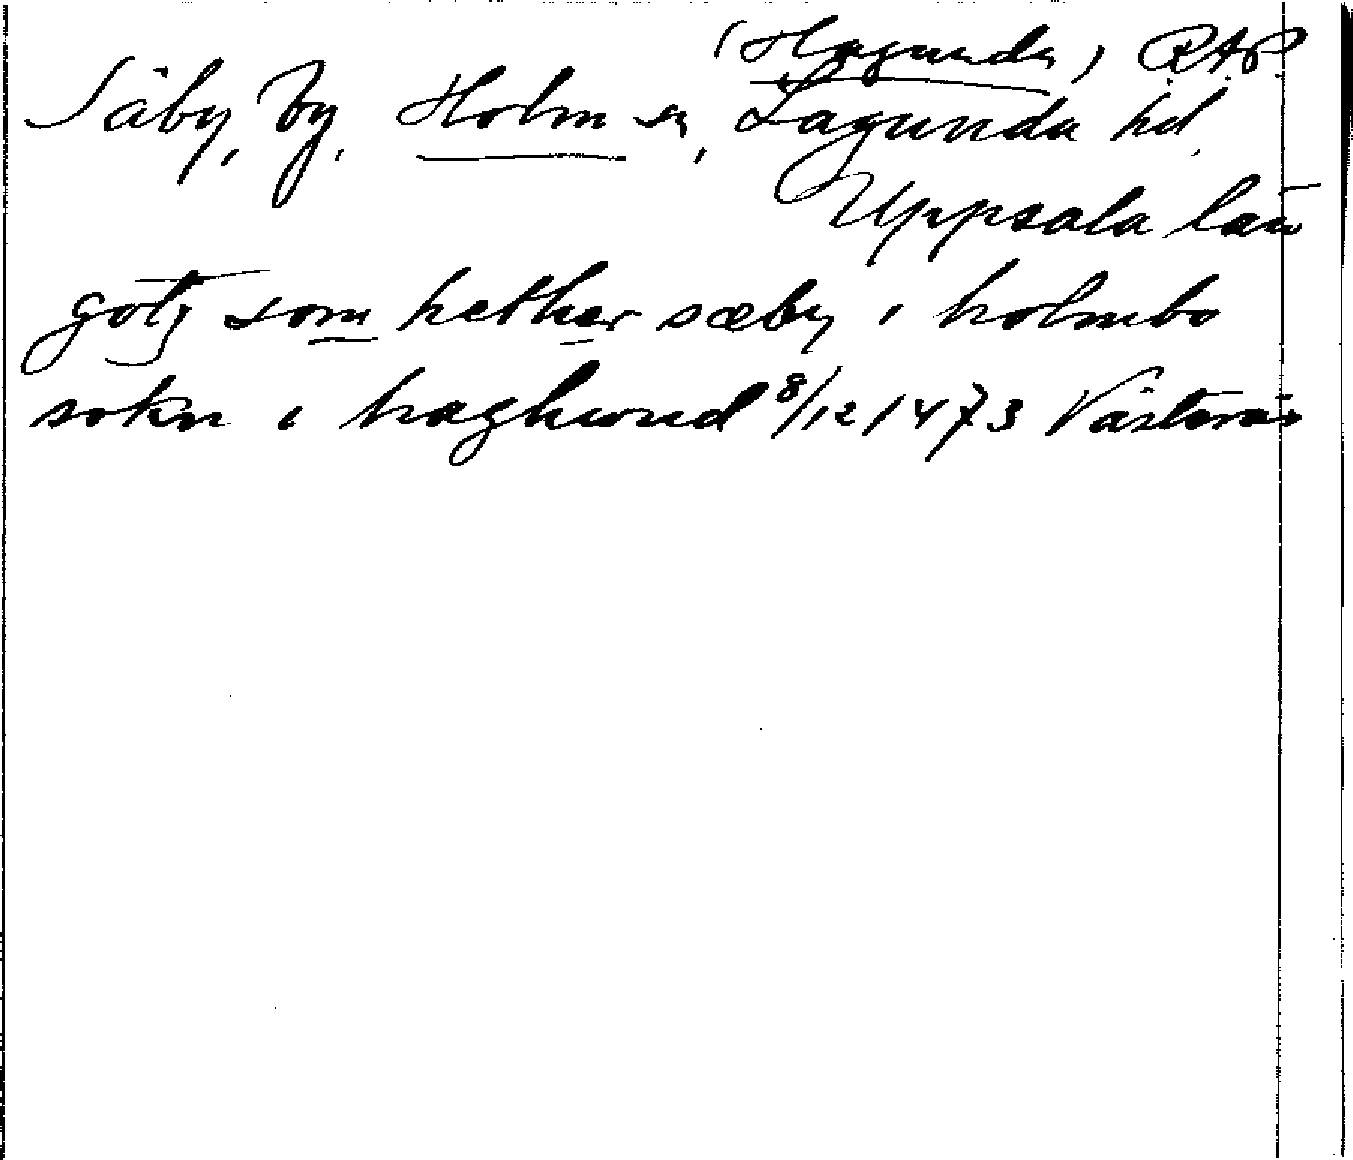 (Hagunda) RAP.
Säby, by, Holm sn, Lagunda hd.
Uppsala län
gotz som hether sæby i holmbo
sokn i haghund 8/12 1473 Västerås